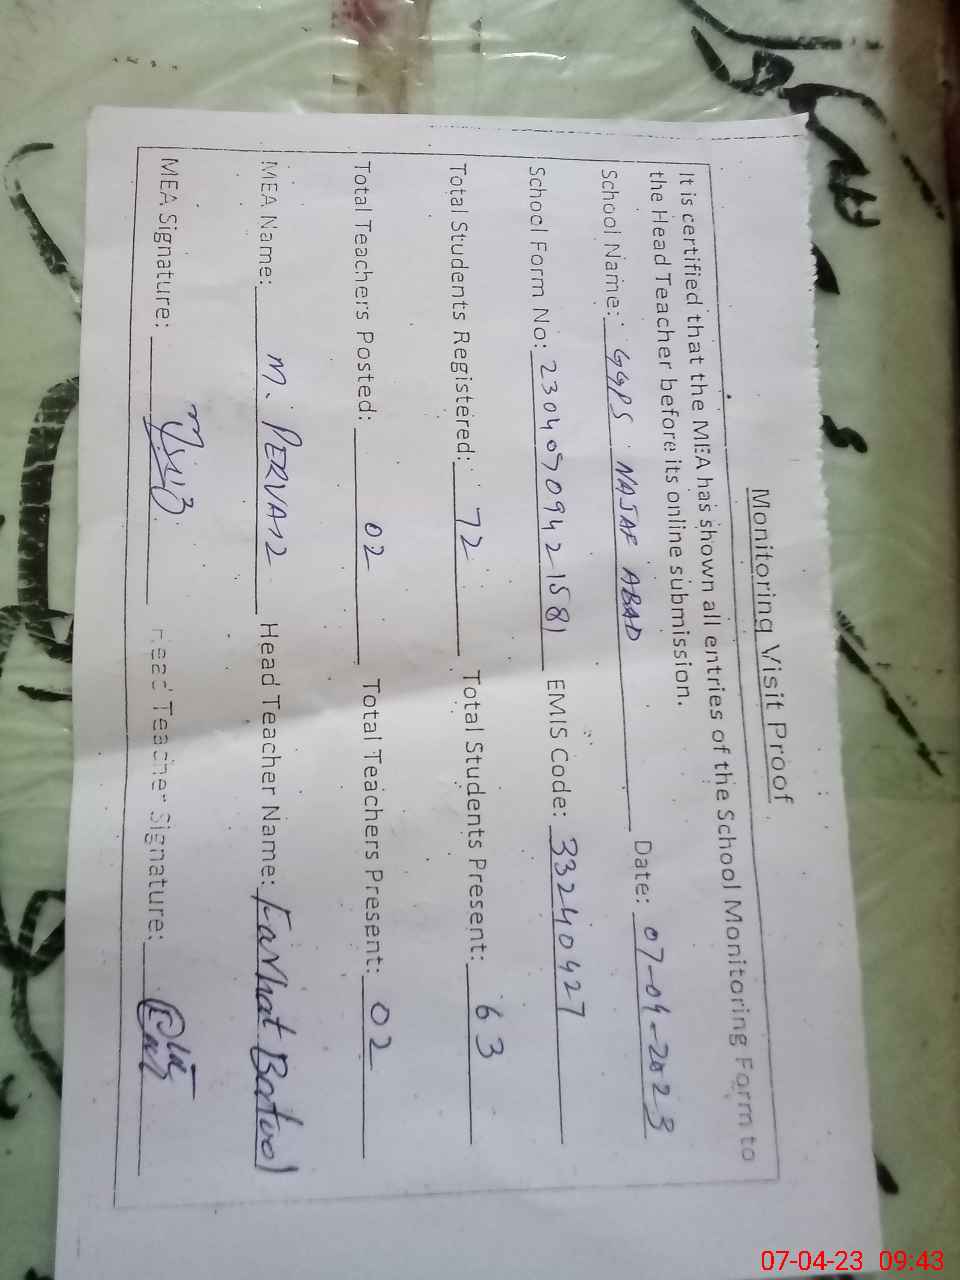 Monitoring Visit Proof
It is certified that the MEA has shown all entries of the School Monitoring Form to
the Head Teacher before its online submission.
School Name: GGPS NAJAF ABAD Date: 07-04-2023
School Form No: 23040909421581 EMIS Code: 33240427
Total Students Registered: 72 Total Students Present: 63
Total Teachers Posted: 02 Total Teachers Present: 02
MEA Name: M. PERVAIZ Head Teacher Name: Farhat Batool
MEA Signature: Head Teacher Signature:
07-04-23 09:43